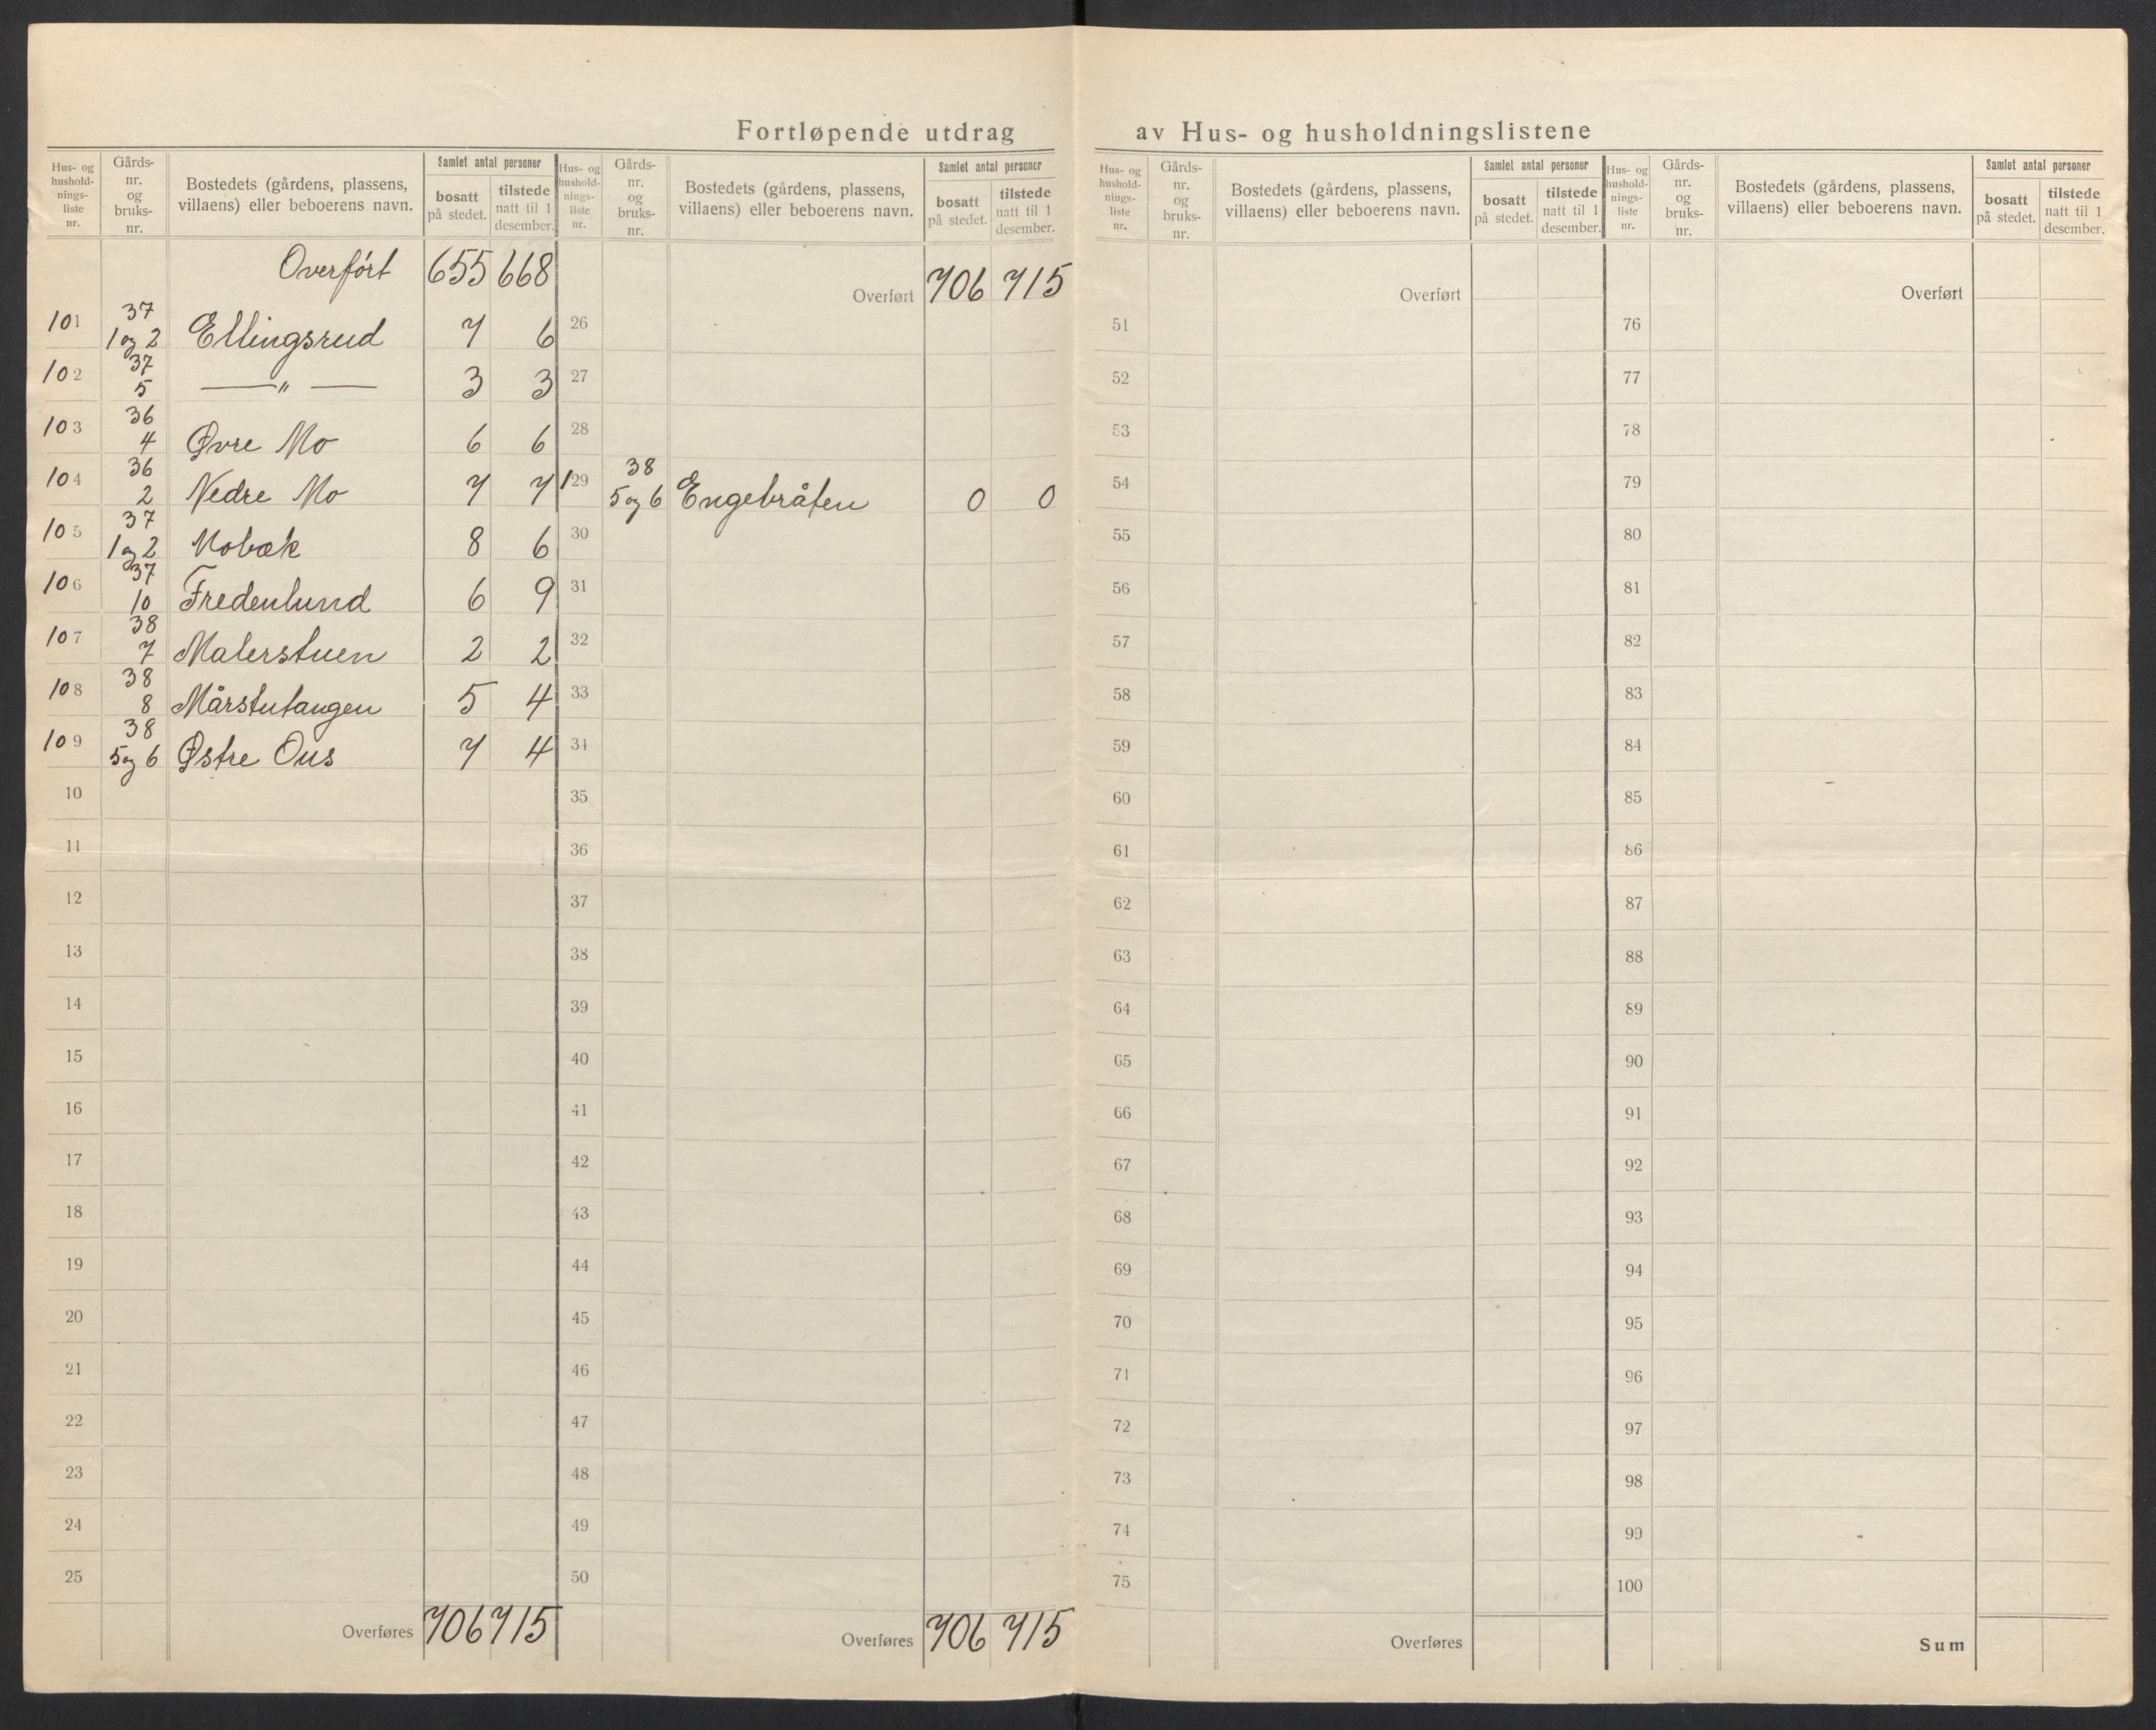 Fortløpende utdrag av Hus- og husholdningslistene
Hus- og hushold- nings- liste nr. Gårds- nr. og bruks- nr. Bostedets (gårdens, plassens, villaens) eller beboerens navn. Samlet antal personer bosatt på stedet. tilstede natt til 1 desember.
Overført 655 668
101 37 1 og 2 Ellingsrud 7 6
102 37 5 —„— 3 3
103 36 4 Øvre Mo 6 6
104 36 2 Nedre Mo 7 7
105 37 1 og 2 Mobæk 8 6
106 37 10 Fredenlund 6 9
107 38 7 Malerstuen 2 2
108 38 8 Mårstutangen 5 4
109 38 5 og 6 Østre Ous 7 4
10
11
12
13
14
15
16
17
18
19
20
21
22
23
24
25
Overføres 706 715
Hus- og hushold- nings- liste nr. Gårds- nr. og bruks- nr. Bostedets (gårdens, plassens, villaens) eller beboerens navn. Samlet antal personer bosatt på stedet. tilstede natt til 1 desember.
Overført 706 715
26
27
28
129 38 5 og 6 Engebråten 0 0
30
31
32
33
34
35
36
37
38
39
40
41
42
43
44
45
46
47
48
49
50
Overføres 706 715
Hus- og hushold- nings- liste nr. Gårds- nr. og bruks- nr. Bostedets (gårdens, plassens, villaens) eller beboerens navn. Samlet antal personer bosatt på stedet. tilstede natt til 1 desember.
Overført
51
52
53
54
55
56
57
58
59
60
61
62
63
64
65
66
67
68
69
70
71
72
73
74
75
Overføres
Hus- og hushold- nings- liste nr. Gårds- nr. og bruks- nr. Bostedets (gårdens, plassens, villaens) eller beboerens navn. Samlet antal personer bosatt på stedet. tilstede natt til 1 desember.
Overført
76
77
78
79
80
81
82
83
84
85
86
87
88
89
90
91
92
93
94
95
96
97
98
99
100
Sum